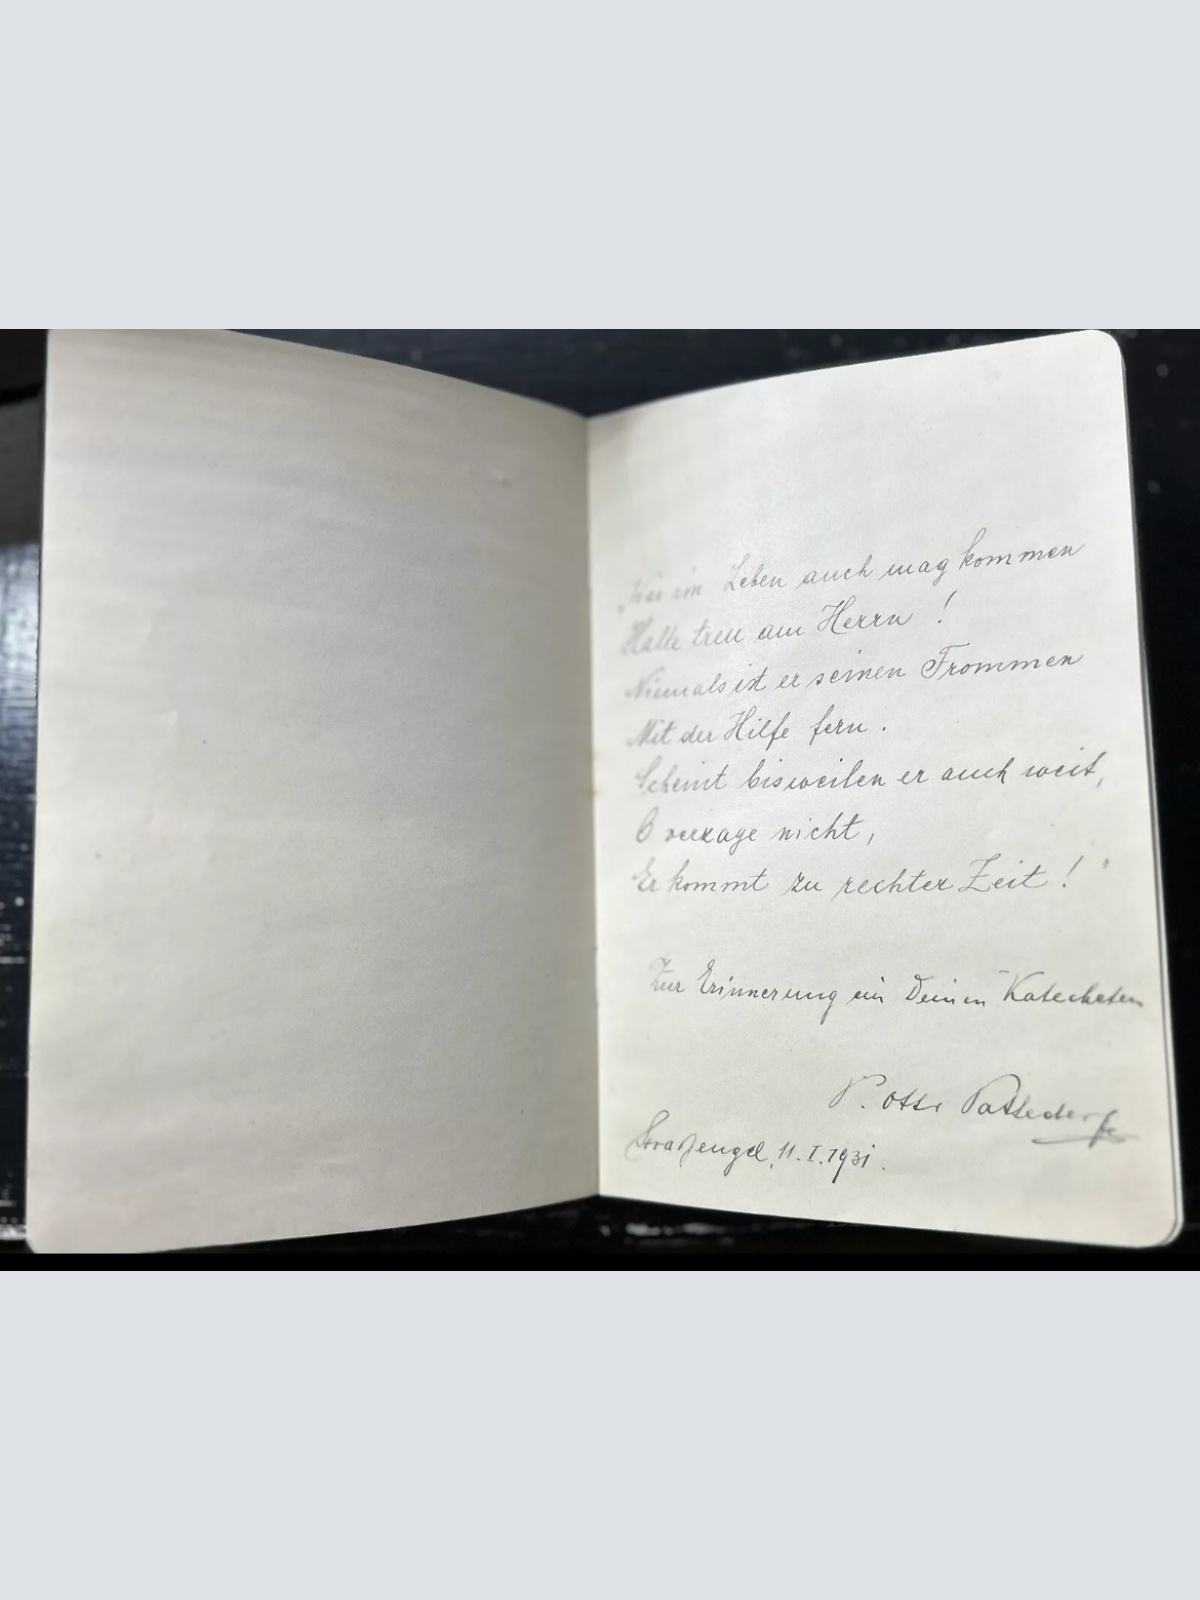 „Was im Leben auch mag kommen
Halte treu am Herrn !
Niemals ist er seinen Frommen
Mit der Hilfe fern .
Scheint bisweilen er auch weit,
O verzage nicht,
Er kommt zu rechter Zeit ! "
Zur Erinnerung an Deinen Katecheten
P. Otto
Straßengel, 11. I. 1931.